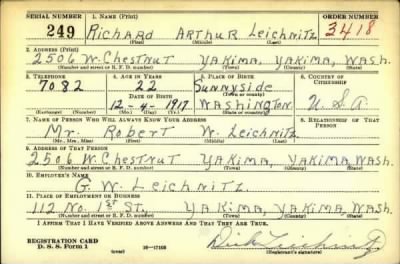 SERIAL NUMBER 1. NAME (Print) ORDER NUMBER
249 RICHARD ARTHUR LEICHNITZ 3418
(First) (Middle) (Last)
2. ADDRESS (Print)
2506 W. CHESTNUT YAKIMA, YAKIMA, WASH.
(Number and street or R. F. D. number) (Town) (County) (State)
3. TELEPHONE 4. AGE IN YEARS 5. PLACE OF BIRTH 6. COUNTRY OF CITIZENSHIP
7082 22 Sunnyside
DATE OF BIRTH (Town or county)
12-4-1917 WASHINGTON U.S.A.
(Exchange) (Number) (Mo.) (Day) (Yr.) (State or country)
7. NAME OF PERSON WHO WILL ALWAYS KNOW YOUR ADDRESS 8. RELATIONSHIP OF THAT PERSON
Mr. Robert W. Leichnitz
(Mr., Mrs., Miss) (First) (Middle) (Last)
9. ADDRESS OF THAT PERSON
2506 W. CHESTNUT YAKIMA, YAKIMA, WASH.
(Number and street or R. F. D. number) (Town) (County) (State)
10. EMPLOYER'S NAME
G. W. LEICHNITZ
11. PLACE OF EMPLOYMENT OR BUSINESS
112 No. 1st ST. YAKIMA, YAKIMA, WASH.
(Number and street or R. F. D. number) (Town) (County) (State)
I AFFIRM THAT I HAVE VERIFIED ABOVE ANSWERS AND THAT THEY ARE TRUE.
REGISTRATION CARD
D. S. S. Form 1 (over) 16-17105 Dick Leichnitz
(Registrant's signature)